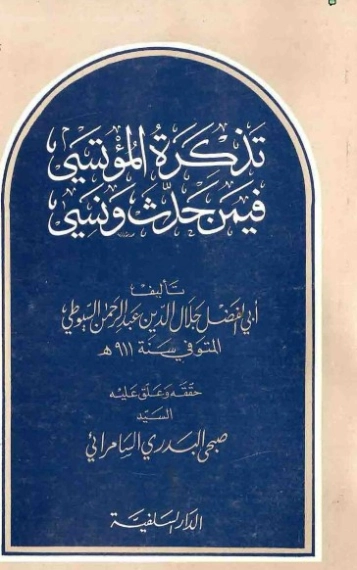 تذكرة المؤتسي
فيمن حدث ونسي
تأليف
أبي الفضل جلال الدين عبد الرحمن السيوطي
المتوفي سنة ٩١١ هـ
حققه وعلق عليه
السيد
صبحي البدري السامرائي
الدار السلفية